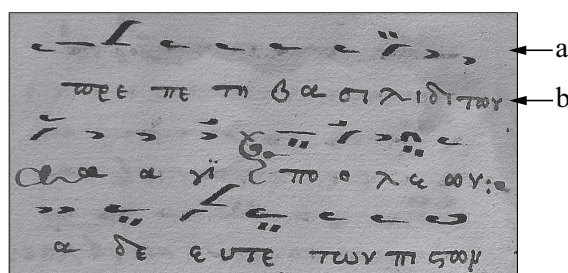 a
πρε πε τη βα σι λι δι των b
α α γϊ πο ο λε ων:
α δε ε υτε των πι